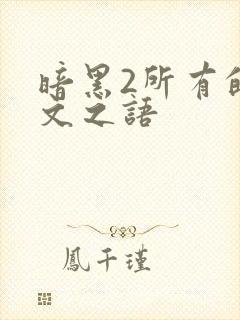 暗黑2所有的
文之語
鳳千瑾